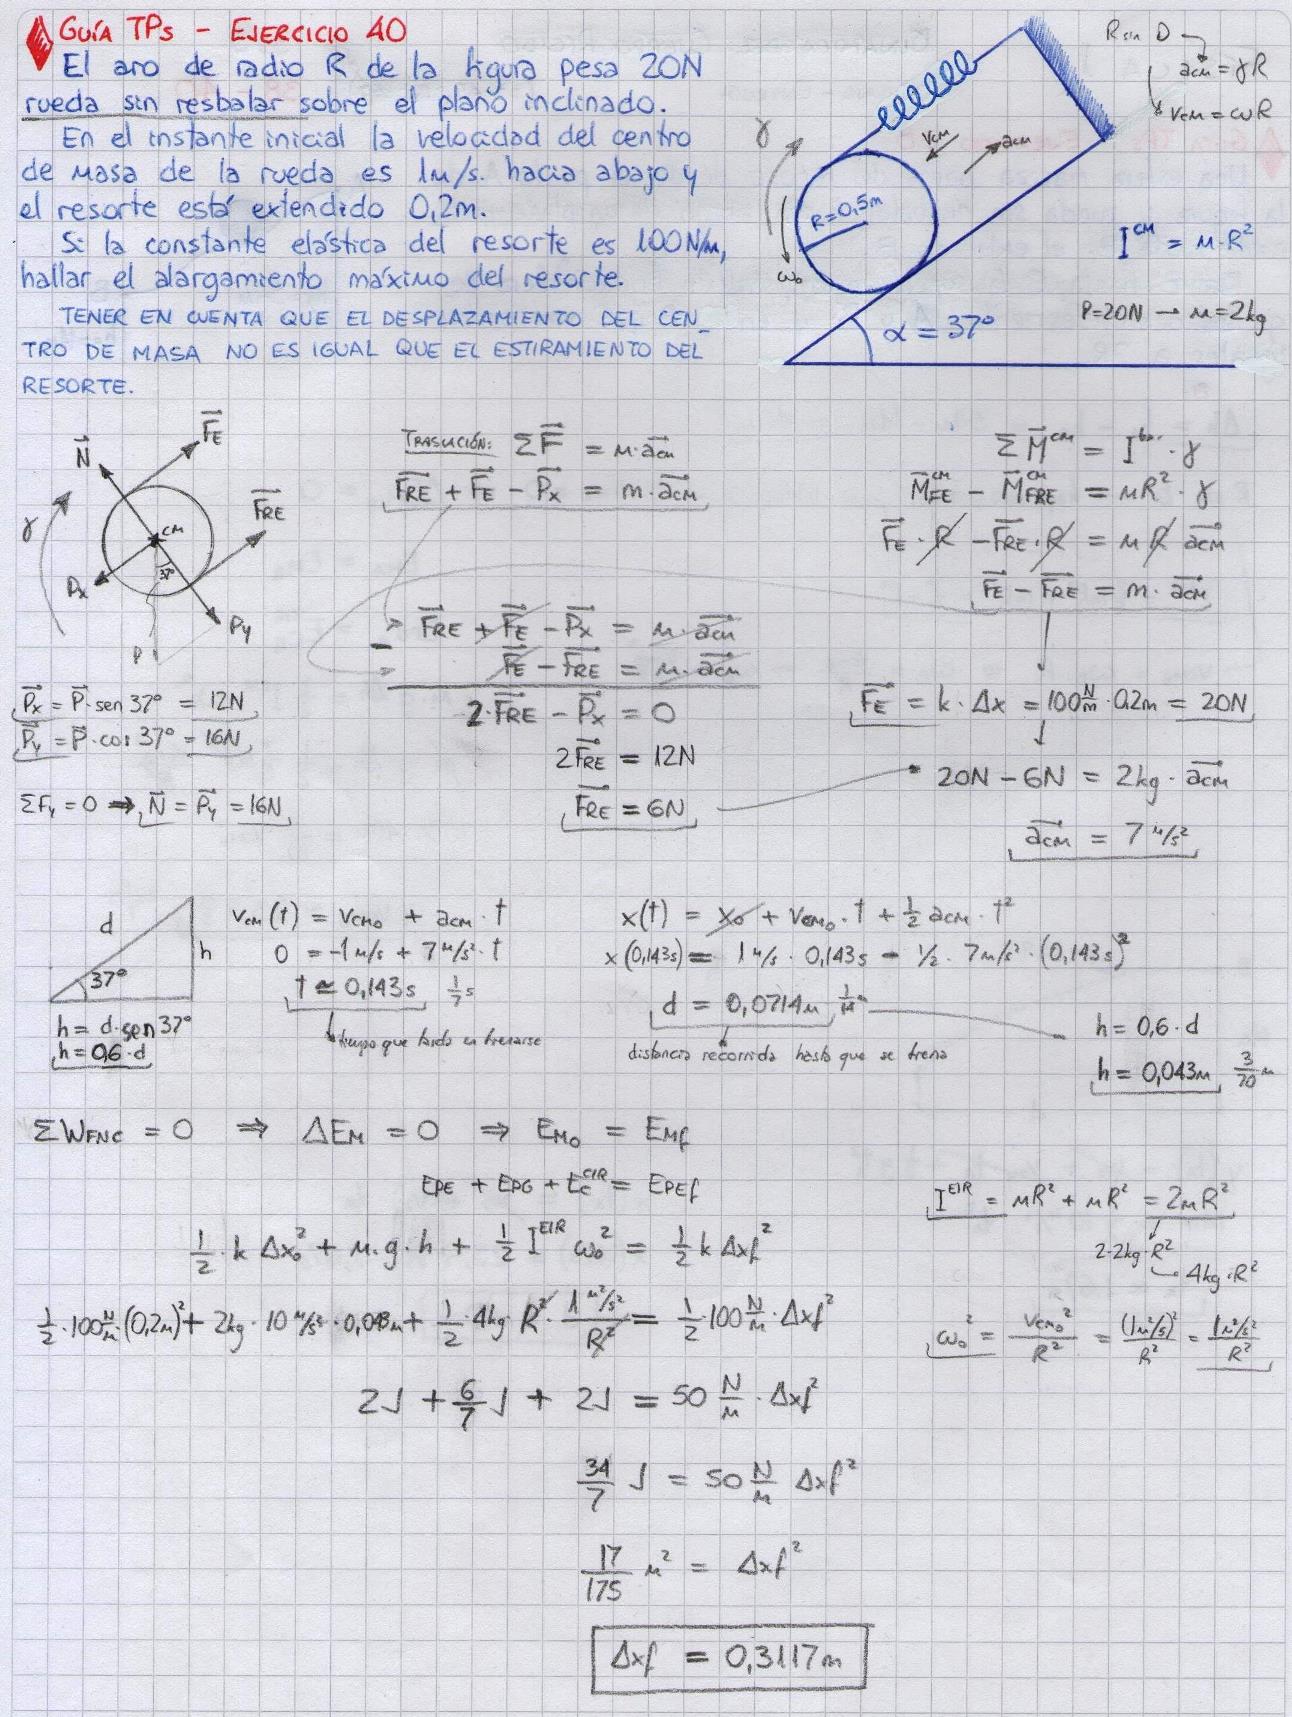 GUÍA TPS - EJERCICIO 40
El aro de radio R de la figura pesa 20N
rueda sin resbalar sobre el plano inclinado.
En el instante inicial la velocidad del centro
de masa de la rueda es 1m/s. hacia abajo y
el resorte está extendido 0,2m.
Si la constante elástica del resorte es 100N/m,
hallar el alargamiento máximo del resorte.
TENER EN CUENTA QUE EL DESPLAZAMIENTO DEL CEN_
TRO DE MASA NO ES IGUAL QUE EL ESTIRAMIENTO DEL
RESORTE.
R sin D
acm = γR
vcm = ωR
γ
vcm
acm
R=0,5m
ω₀
I^CM = M·R²
P=20N → M=2kg
α = 37°
N
FE
FRE
γ
CM
37°
Px
Py
P
Px = P·sen 37° = 12N
Py = P·cos 37° = 16N
ΣFy = 0 ⇒ N = Py = 16N
TRASLACIÓN: ΣF = m·acm
FRE + FE - Px = m·acm
FRE + FE - Px = m·acm
- FE - FRE = m·acm
2·FRE - Px = 0
2FRE = 12N
FRE = 6N
ΣM^CM = I^bar.·γ
M^CM FE - M^CM FRE = MR²·γ
FE·R - FRE·R = M R acm
FE - FRE = m·acm
FE = k·Δx = 100 N/m · 0,2m = 20N
20N - 6N = 2kg·acm
acm = 7 m/s²
d
h
37°
h = d·sen 37°
h = 0,6·d
vcm(t) = vcm₀ + acm·t
0 = -1 m/s + 7 m/s²·t
t ≃ 0,143s 1/7 s
tiempo que tarda en frenarse
x(t) = x₀ + vcm₀·t + ½ acm·t²
x(0,143s) = 1 m/s · 0,143s - ½·7 m/s²·(0,143s)²
d = 0,0714m 1/14 m
distancia recorrida hasta que se frena
h = 0,6·d
h = 0,043m 3/70 m
ΣWFNC = 0 ⇒ ΔEM = 0 ⇒ EM₀ = EMf
EPE + EPG + Ec^CIR = EPEf
½·k Δx₀² + m·g·h + ½ I^EIR ω₀² = ½ k Δxf²
½·100 N/m·(0,2m)² + 2kg·10 m/s²·0,043m + ½·4kg·R²·1 m²/s²/R² = ½·100 N/m·Δxf²
2J + 6/7 J + 2J = 50 N/m·Δxf²
34/7 J = 50 N/m Δxf²
17/175 m² = Δxf²
Δxf = 0,3117m
I^EIR = MR² + MR² = 2MR²
2·2kg·R²
4kg·R²
ω₀² = vcm₀²/R² = (1m/s)²/R² = 1m²/s²/R²